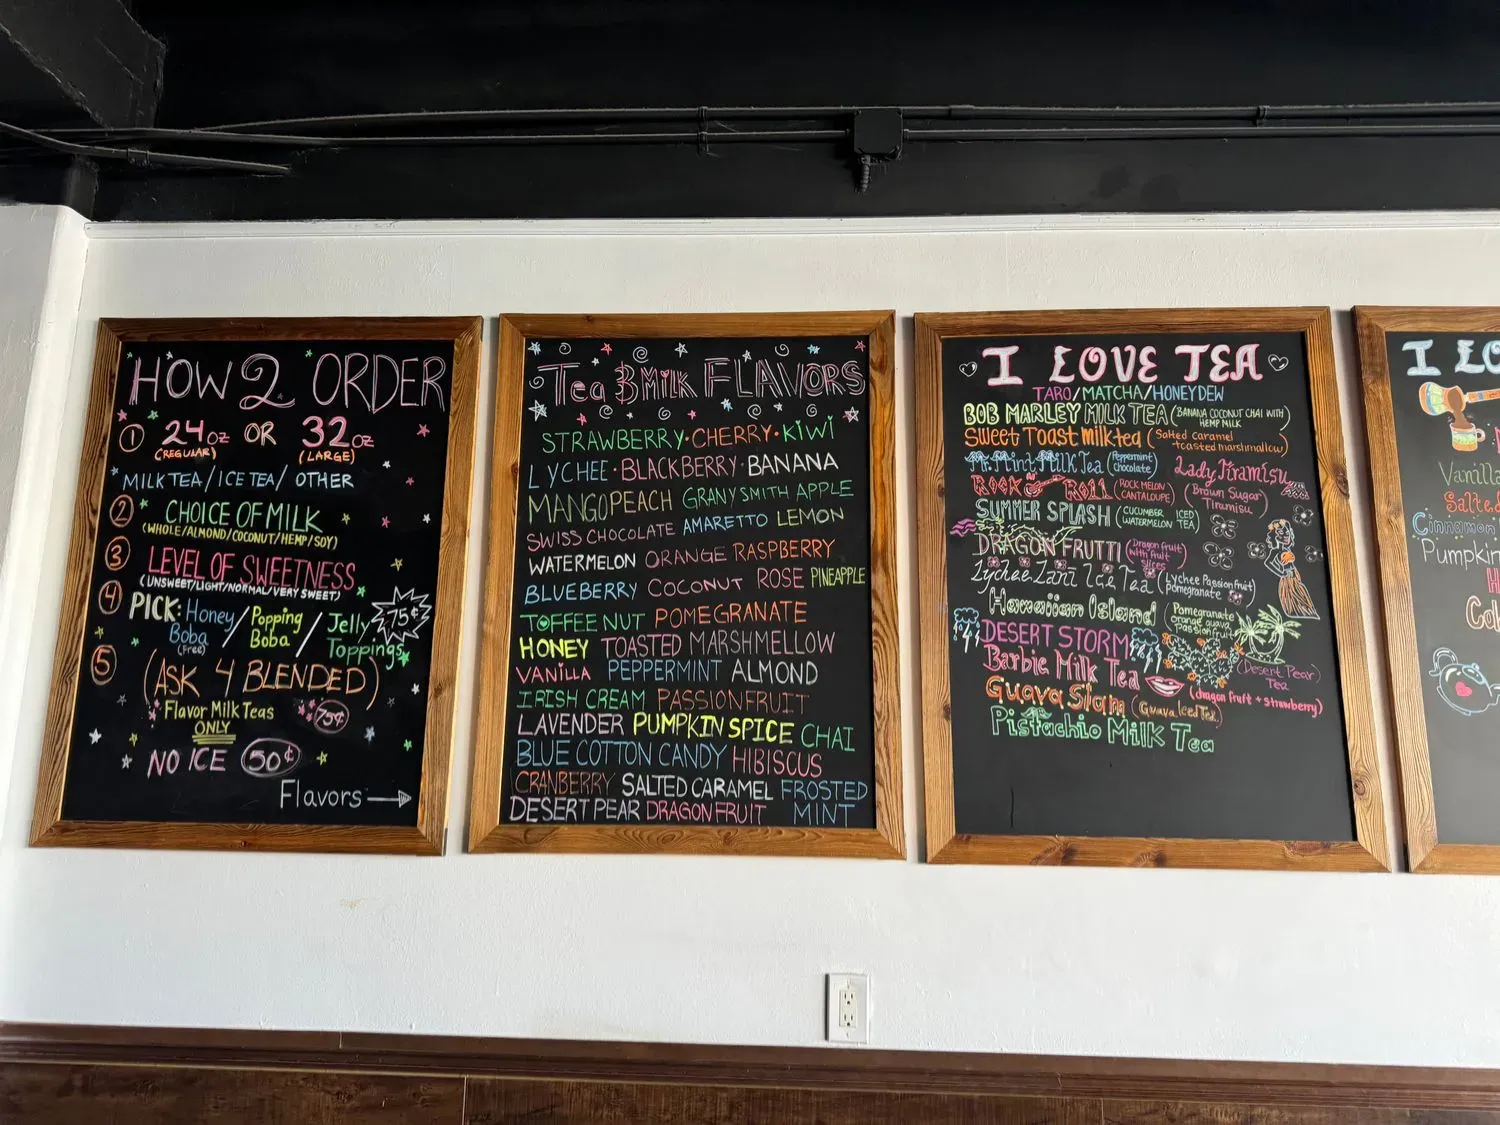 HOW 2 ORDER
1 24oz OR 32oz
(REGULAR) (LARGE)
MILK TEA / ICE TEA / OTHER
2 CHOICE OF MILK
(WHOLE/ALMOND/COCONUT/HEMP/SOY)
3 LEVEL OF SWEETNESS
(UNSWEET/LIGHT/NORMAL/VERY SWEET)
4 PICK: Honey Boba (Free) / Popping Boba / Jelly Toppings 75¢
5 (ASK 4 BLENDED)
Flavor Milk Teas 75¢
ONLY
NO ICE 50¢
Flavors →
Tea & Milk FLAVORS
STRAWBERRY · CHERRY · KIWI
LYCHEE · BLACKBERRY · BANANA
MANGO PEACH GRANY SMITH APPLE
SWISS CHOCOLATE AMARETTO LEMON
WATERMELON ORANGE RASPBERRY
BLUEBERRY COCONUT ROSE PINEAPPLE
TOFFEE NUT POMEGRANATE
HONEY TOASTED MARSHMELLOW
VANILLA PEPPERMINT ALMOND
IRISH CREAM PASSIONFRUIT
LAVENDER PUMPKIN SPICE CHAI
BLUE COTTON CANDY HIBISCUS
CRANBERRY SALTED CARAMEL FROSTED
DESERT PEAR DRAGONFRUIT MINT
I LOVE TEA
TARO/MATCHA/HONEYDEW
BOB MARLEY MILK TEA (BANANA COCONUT CHAI WITH
HEMP MILK)
Sweet Toast milk tea (Salted caramel
toasted marshmallow)
Mr. Mint Milk Tea (Peppermint
chocolate)
Lady Tiramisu
(Brown Sugar
Tiramisu)
ROCK & ROLL (ROCK MELON
CANTALOUPE)
SUMMER SPLASH (CUCUMBER ICED
WATERMELON TEA)
DRAGON FRUTTI (Dragon fruit
with fruit
slices)
Lychee Zani Ice Tea (Lychee Passionfruit
pomegranate)
Hawaiian Island Pomegranate
orange guava
Passion fruit
DESERT STORM (Desert Pear)
Tea
Barbie Milk Tea (dragon fruit + strawberry)
Guava Siam (Guava Iced Tea)
Pistachio Milk Tea
I LO
Vanilla
Salted
Cinnamon
Pumpkin